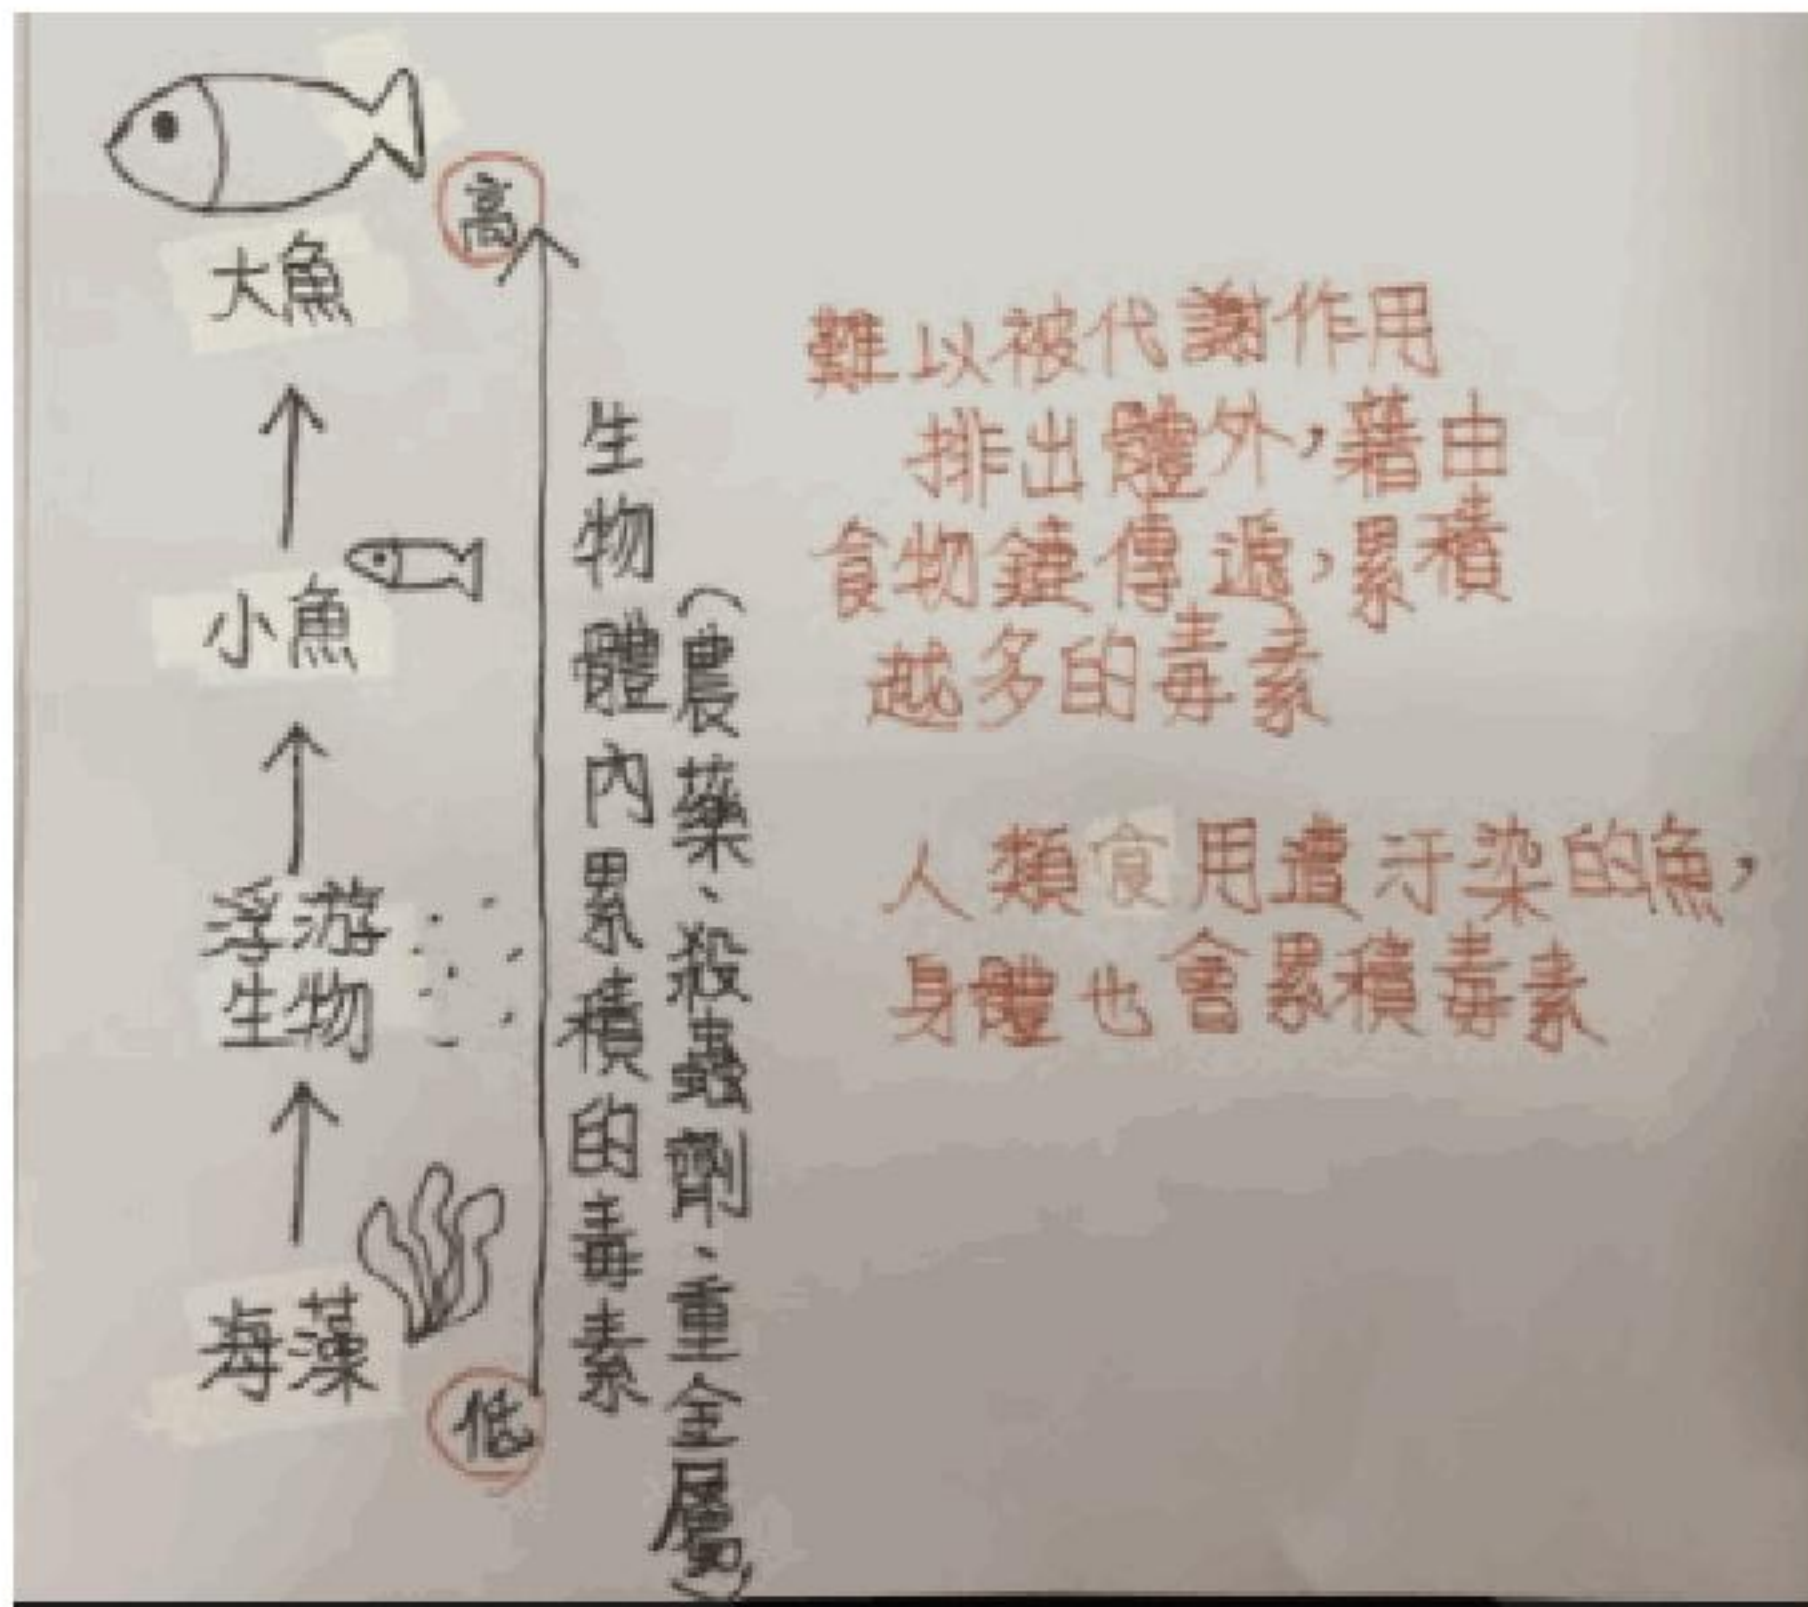 大魚
高
小魚
浮游
生物
海藻
低
生物體內累積的毒素
(農藥、殺蟲劑、重金屬)
難以被代謝作用
排出體外,藉由
食物鏈傳遞,累積
越多的毒素
人類食用遭汙染的魚,
身體也會累積毒素